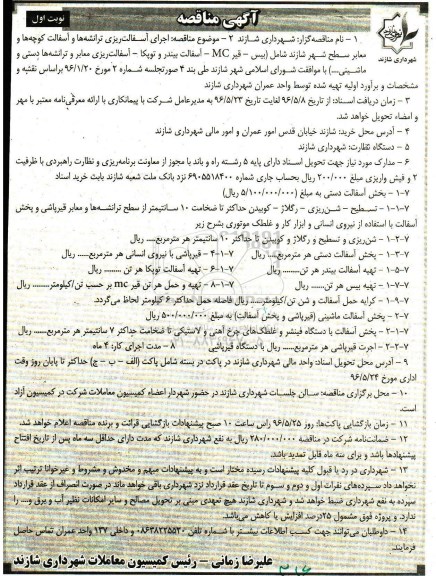 آگهی مناقصه
نوبت اول
شهرداری شازند
۱ – نام مناقصه‌گزار: شهرداری شازند ۲ – موضوع مناقصه: اجرای آسفالت‌ریزی ترانشه‌ها و آسفالت کوچه‌ها و
معابر سطح شهر شازند شامل (بیس – قیر MC – آسفالت بیندر و توپکا – آسفالت‌ریزی معابر و ترانشه‌ها دستی و
ماشینی...) با موافقت شورای اسلامی شهر شازند طی بند ۲ صورتجلسه شماره ۲ مورخ ۹۶/۱/۲۰ براساس نقشه و
مشخصات و برآورد اولیه تهیه شده توسط واحد عمران شهرداری شازند
۳ – زمان دریافت اسناد: از تاریخ ۹۶/۵/۸ لغایت تاریخ ۹۶/۵/۲۳ به مدیرعامل شرکت یا پیمانکاری با ارائه معرفی‌نامه معتبر با مهر
و امضاء تحویل خواهد شد.
۴ – آدرس محل خرید: شازند خیابان قدس امور عمران و امور مالی شهرداری شازند
۵ – دستگاه نظارت: شهرداری شازند
۶ – مدارک مورد نیاز جهت تحویل اسناد دارای پایه ۵ رشته راه و باند با مجوز از معاونت برنامه‌ریزی و نظارت راهبردی با ظرفیت
۲ و فیش واریزی مبلغ ۲۰۰/۰۰۰ ریال بحساب جاری شماره ۶۹۰۵۵۱۸۴۰۰ نزد بانک ملت شعبه شازند بابت خرید اسناد
۱–۷ – پخش آسفالت دستی به مبلغ (۵/۱۰۰/۰۰۰/۰۰۰ ریال)
۱–۱–۷ – تسطیح – شن‌ریزی – رگلاژ – کوبیدن حداکثر تا ضخامت ۱۰ سانتیمتر از سطح ترانشه‌ها و معابر قیرپاشی و پخش
آسفالت با استفاده از نیروی انسانی و ابزار کار و غلطک موتوری بشرح زیر
۱–۲–۷ – شن‌ریزی و تسطیح و رگلاژ و کوبیدن تا حداکثر ۱۰ سانتیمتر هر مترمربع..... ریال
۱–۳–۷ – پخش آسفالت دستی هر مترمربع..... ریال ۱–۴–۷ – قیرپاشی با نیروی انسانی هر مترمربع..... ریال
۱–۵–۷ – تهیه آسفالت بیندر هر تن........ ریال ۱–۶–۷ – تهیه آسفالت توپکا هر تن ........ ریال
۱–۷–۷ – تهیه بیس هر تن....... ریال ۱–۸–۷ – تهیه و حمل هر تن قیر mc بر حسب تن/کیلومتر...... ریال
۱–۹–۷ – کرایه حمل آسفالت و شن تن/کیلومتر...... ریال فاصله حمل حداکثر ۶ کیلومتر لحاظ می‌گردد.
۲–۷ – پخش آسفالت ماشینی (قیرپاشی و پخش آسفالت) به مبلغ ۵۰۰/۰۰۰/۰۰۰ ریال
۲–۱–۷ – پخش آسفالت با دستگاه فینشر و غلطک‌های چرخ آهنی و لاستیکی تا ضخامت حداکثر ۷ سانتیمتر هر مترمربع...... ریال
۲–۲–۷ – اجرت قیرپاشی هر مترمربع...... ریال با دستگاه قیرپاش ۸ – مدت اجرای کار: ۴ ماه
۹ – آدرس محل تحویل اسناد: واحد مالی شهرداری شازند در پاکت در بسته شامل پاکت (الف – ب – ج) حداکثر تا پایان روز وقت
اداری مورخ ۹۶/۵/۲۴
۱۰ – محل برگزاری مناقصه: سالن جلسات شهرداری شازند در حضور شهردار اعضاء کمیسیون معاملات شرکت در کمیسیون آزاد
است.
۱۱ – زمان بازگشایی پاکت‌ها: روز ۹۶/۵/۲۵ راس ساعت ۱۰ صبح پیشنهادات بازگشایی قرائت و برنده مناقصه اعلام خواهد شد.
۱۲ – ضمانت‌نامه شرکت در مناقصه ۲۸۰/۰۰۰/۰۰۰ ریال به نفع شهرداری شازند که مدت دارای حداقل سه ماه پس از تاریخ افتتاح
پیشنهادها باشد و برای سه ماه قابل تمدید باشد.
۱۳ – شهرداری در رد یا قبول کلیه پیشنهادات رسیده مختار است و به پیشنهادات مبهم و مخدوش و مشروط و غیرخوانا ترتیب اثر
نخواهد داد سپرده‌های نفرات اول و دوم و سوم تا تاریخ عقد قرارداد نزد شهرداری باقی خواهد ماند در صورت انصراف از عقد قرارداد
سپرده به نفع شهرداری ضبط خواهد شد و شهرداری شازند هیچ تعهدی مبنی بر تحویل مصالح و سایر امکانات نظیر آب و برق و.... را
ندارد. و پروژه فوق مشمول ۲۵درصد افزایش یا کاهش می‌باشد.
۱۴ – داوطلبان می‌توانند جهت کسب اطلاعات بیشتر با شماره تلفن ۰۸۶۳۸۲۲۵۵۲۰ و داخلی ۱۳۷ واحد عمران تماس حاصل
فرمایند.
علیرضا زمانی – رئیس کمیسیون معاملات شهرداری شازند